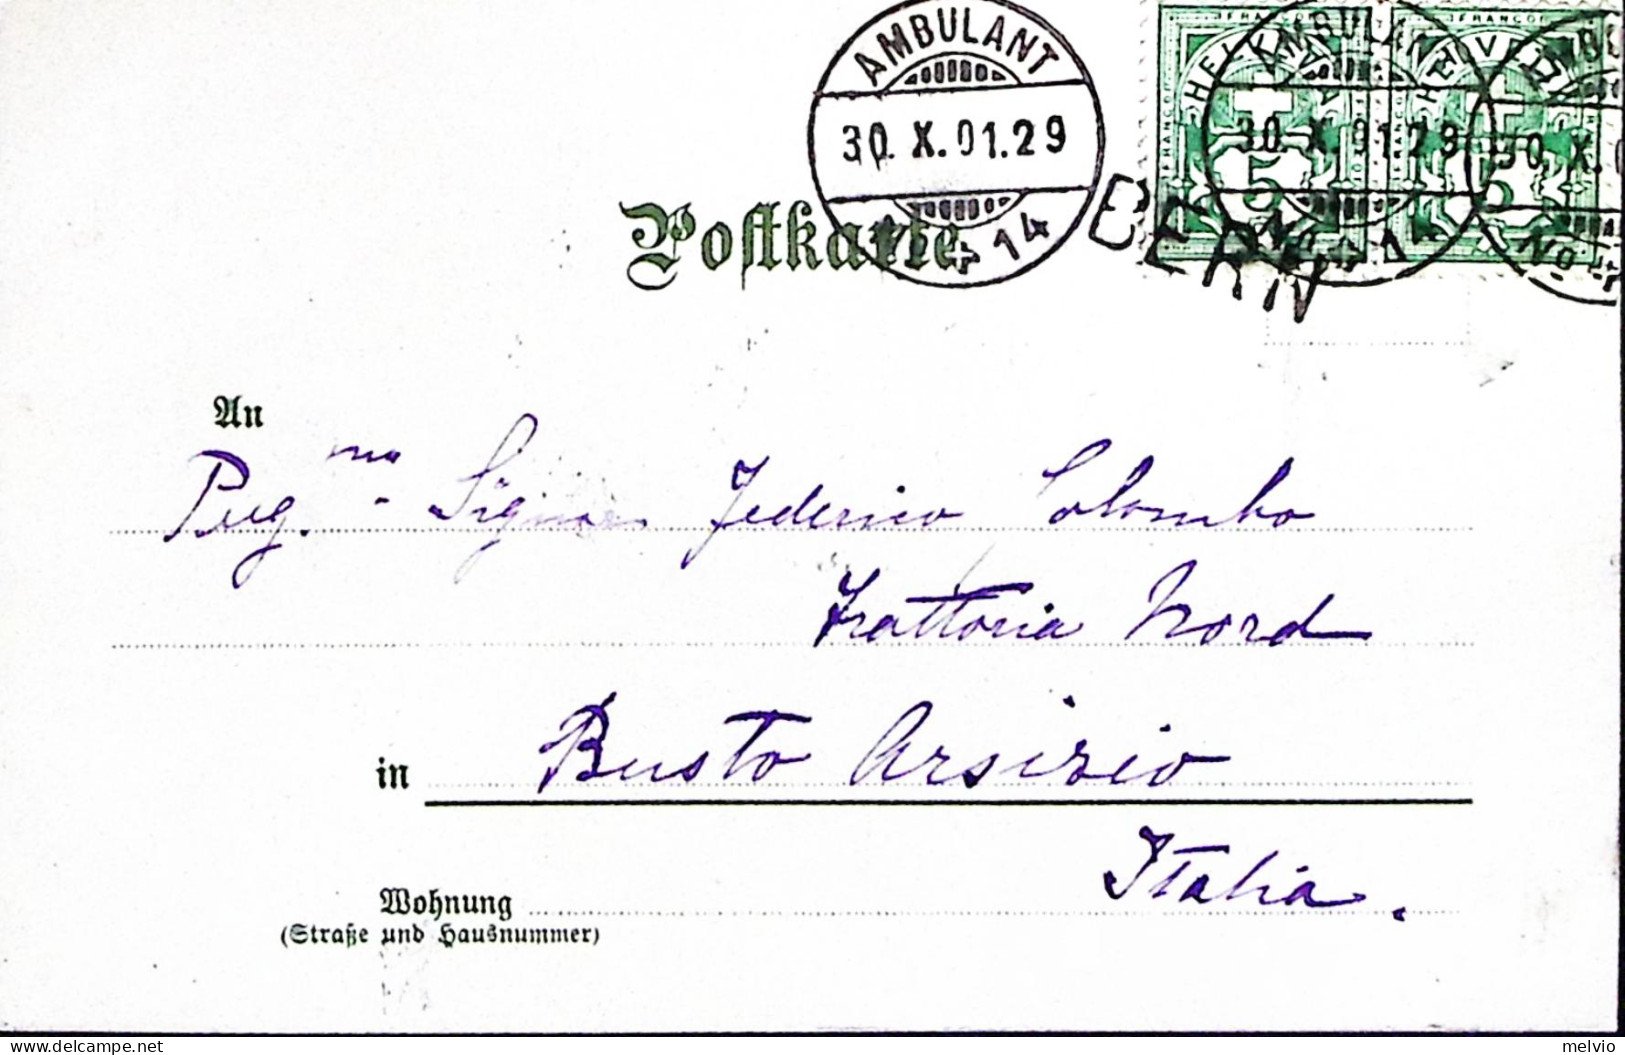 AMBULANT
30.X.01.29
No 4 14
FRANCO FRANCO
HELVETIA HELVETIA
5 5
AMBULANT
30.X.01.29
BERN
Postkarte
An
Preg.ma Signora Federico Colombo
Trattoria Nord
in Busto Arsizio
Italia.
Wohnung
(Straße und Hausnummer)
melvio